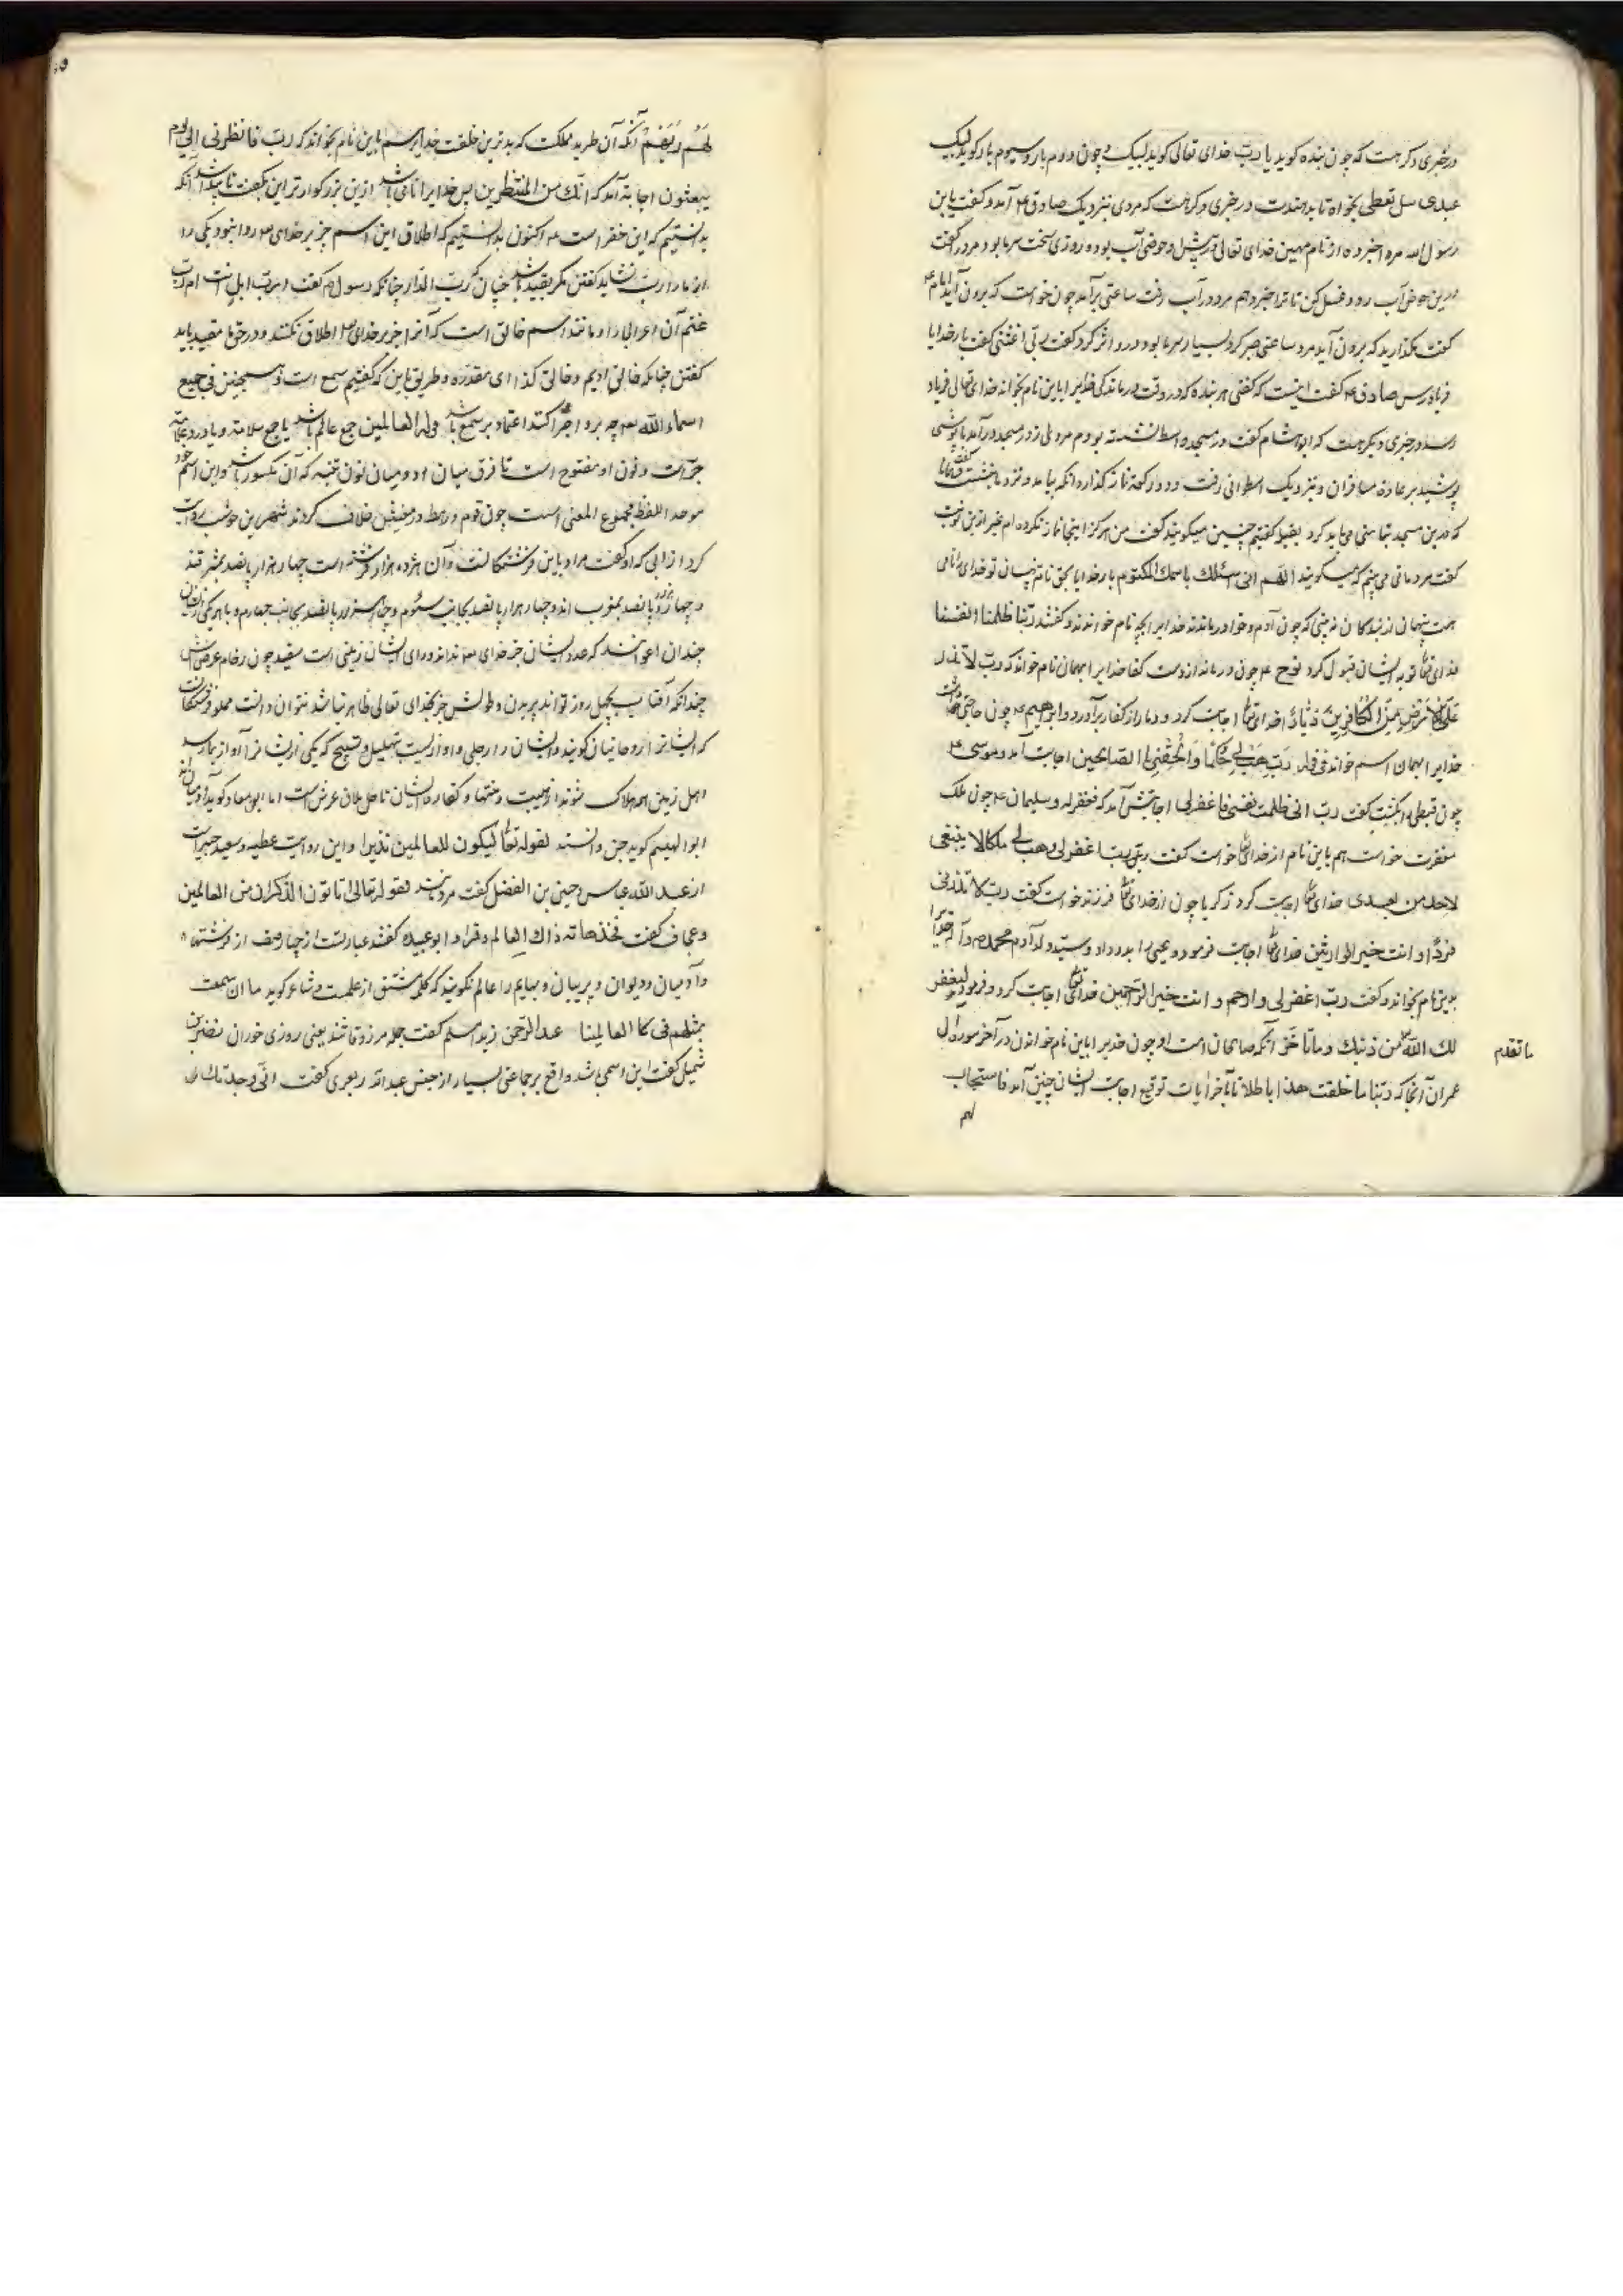 در خبری دکر هست که چون بنده کوید یا رب خدای تعالی کوید لبیک و چون دوم بار و سیوم بار کوید کوید لبیک
عبدی سل تعطی بخواه تا بدهندت در خبری دکر هست که مردی بنزدیک صادق ع آمد و کفت یابن
رسول الله مرا خبر ده از نام مهین خدای تعالی در پیش او حوضی آب بود و روزی سخت سرما بود مرد را کفت
درین حوض آب رو و غسل کن تا ترا خبر دهم مرد در آب رفت ساعتی برآمد چون خواست که برون آید امام ع
کفت مکذارید که برون آید مرد ساعتی صبر کرد بسیار سرما بود و درو اثر کرد کفت ربی اغثنی کفت بار خدایا
فریادرس صادق ع کفت اینست که کفتی هر بنده که در وقت درماندکی خدایرا باین نام بخواند خدای تعالی فریاد
رسد در خبری دیکر هست که ابو هشام کفت در مسجد واسط نشسته بودم مردی از در مسجد درآمد با پوششی
پوشیده بر عادة مسافران و بنزدیک اسطوانی رفت و دو رکعة نماز کذارد و آنکه بیامد و نزد ما بنشست کفت قبلة
که درین مسجد تیاسنی می باید کرد بقبله کفتیم چنین میکویند کفت من هرکز اینجا نماز نکرده ام غیر ازین نوبت
کفت مردمانی می بینم که میکویند اللهم انی اسئلک باسمک المکتوم بار خدایا بحق نام پنهان تو خدای را نامی
هست پنهان از بندکان نه بینی که چون آدم و حوا درماندند خدایرا بچه نام خواندند و کفتند ربنا ظلمنا انفسنا
خدای تعا توبه ایشان قبول کرد نوح ع چون درماند از دست کفا خدایرا بهمان نام خواند که رب لا تذر
علی الارض من الکافرین دیارا خدای تعا اجابت کرد و دمار از کفار برآورد و ابراهیم ع چون حاجتی خواست
خدایرا بهمان اسم خواند فی قوله رب هب لی حکما و الحقنی بالصالحین اجابت آمد و موسی ع
چون قبطی را بکشت کفت رب انی ظلمت نفسی فاغفرلی اجابتش آمد که فغفر له و سلیمان ع چون ملک
مغفرت خواست هم باین نام از خدای تعا خواست کفت رب اغفرلی و هب لی ملکا لا ینبغی
لاحد من بعدی خدای تعا اجابت کرد زکریا چون از خدای تعا فرزند خواست کفت رب لا تذرنی
فردا و انت خیر الوارثین خدای تعا اجابت فرمود و یحیی را بدو داد و سید ولد آدم محمد ص و آله خدایرا
بدین نام بخواند و کفت رب اغفرلی و ارحم و انت خیر الراحمین خدای تعا اجابت کرد و فرمود لیغفر
لک الله من ذنبک و ما تاخر آنکه صالحان امت او چون خدیرا باین نام خواندن در آخر سورة ال
ما تقدم
عمران آنجا که ربنا ما خلقت هذا باطلا تا بآخر آیات توقیع اجابت ایشان چنین آمد فاستجاب
لهم
لهم ربهم آنکه آن طرید مملکت که بدترین خلقت خدایرا هم باین نام بخواند که رب فانظرنی الی یوم
یبعثون اجابة آمد که انک من المنظرین پس خدایرا نامی باشد ازین بزرکوارتر این بکفت ناپیدا شد آنکه
بدانستیم که این خضر است ع اکنون بدانستیم که اطلاق این اسم جز بر خدای تعا روا نبود یکی را
از ما را رب نشاید کفتن مکر بقید باشد چنان که رب الدار چنانکه رسول ص کفت ارب ابل انت ام رب
غنم آن اعرابی را و مانند اسم خالق است که آنرا جز بر خدای تعا اطلاق نکنند و در حق ما مقید باید
کفتن چنانکه خالق ادیم و خالق کذا ای مقدره و طریق باین که کفتیم سمع است و همچنین فی جمیع
اسماء الله تعا چه برو اجرا کنند اعتماد بر سمع باشد قوله العالمین جمع عالم باشد یا جمع سلامة و یا در و علامة
جرّ است و نون او مفتوح است تا فرق میان او و میان نون تثنیه که آن مکسور باشد و این اسم خود
موحد اللفظ مجموع المعنی است چون قوم و رهط در معنیش خلاف کردند شهر بن حوشب روایت
کرد از ابی که او کفت مراد باین فرشتکانند و آن هژده هزار فرشته است چهار هزار پانصد بمشرقند
و چهار هزار و پانصد بمغرب اند و چهار هزار پانصد بجانب سئوم و چهار هزار پانصد بجانب چهارم و با هر یکی از ایشان
چندان اعوانند که عدد ایشان جز خدای تعا نداند و رای ایشان زمینی است سفید چون رخام عرضش
چندانکه آفتاب بچهل روز تواند بریدن و طولش جز بخدای تعالی ظاهر نباشد نتوان دانست مملو فرشتکانست
که ایشانرا روحانیان کویند و ایشان را زجلی و آوازیست بتهلیل و تسبیح که یکی از ایشان فراآواز نماید
اهل زمین همه هلاک شوند از هیبت و منتها و کناره ایشان تا حاملان عرش است اما ابو معاد کوید آدمیان اند
ابو الهیثم کوید جن و انسند لقوله تعا لیکون للعالمین نذیرا و این روایت عطیه و سعید جبیر است
از عبد الله عباس و حسین بن الفضل کفت مردمند لقوله تعالی اتاتون الذکران من العالمین
و عجاج کفت بخندف هامة ذاک العالم و فراء و ابو عبیده کفتند عبارتست از چهار صنف از فرشتها
و آدمیان و دیوان و پریان و بهایم را عالم نکویند که کلمه مشتق از علمست و شاعر کوید ما ان سمعت
بمثلهم فی العالمینا عبد الرحمن زید اسلم کفت جمله مرزوقانند یعنی روزی خوران نضر بن
شمیل کفت این اسمی باشد واقع بر جماعتی بسیار از جنس عبد الله ربعری کفت انی وجدتک